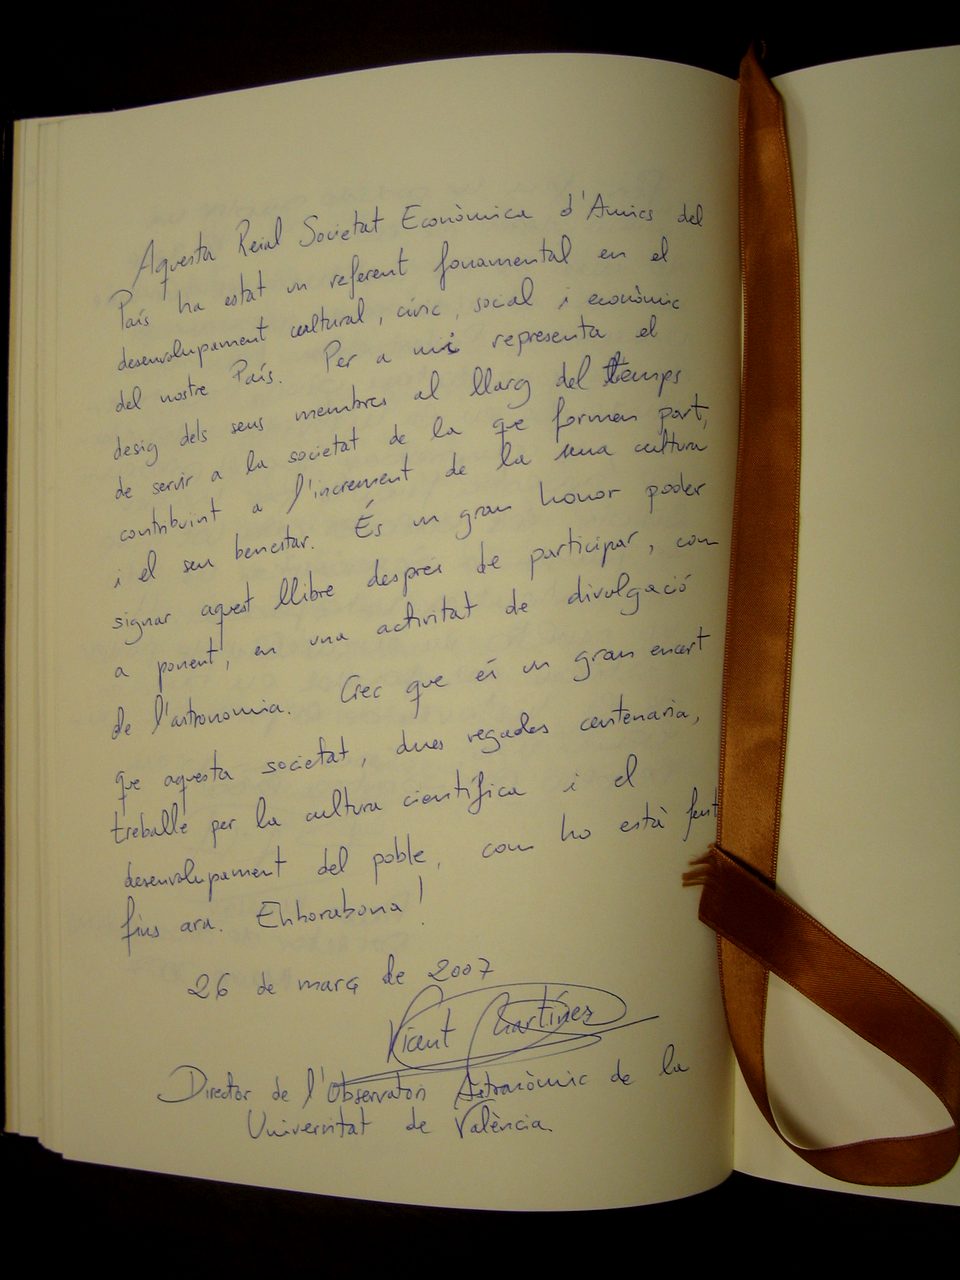 Aquesta Reial Societat Econòmica d'Amics del
País ha estat un referent fonamental en el
desenvolupament cultural, cívic, social i econòmic
del nostre País. Per a mi representa el
desig dels seus membres al llarg del temps
de servir a la societat de la que formen part,
contribuint a l'increment de la seua cultura
i el seu benestar. És un gran honor poder
signar aquest llibre després de participar, com
a ponent, en una activitat de divulgació
de l'astronomia. Crec que és un gran encert
que aquesta societat, dues vegades centenària,
treballe per la cultura científica i el
desenvolupament del poble, com ho està fent
fins ara. Enhorabona!
26 de març de 2007
Vicent Martínez
Director de l'Observatori Astronòmic de la
Universitat de València